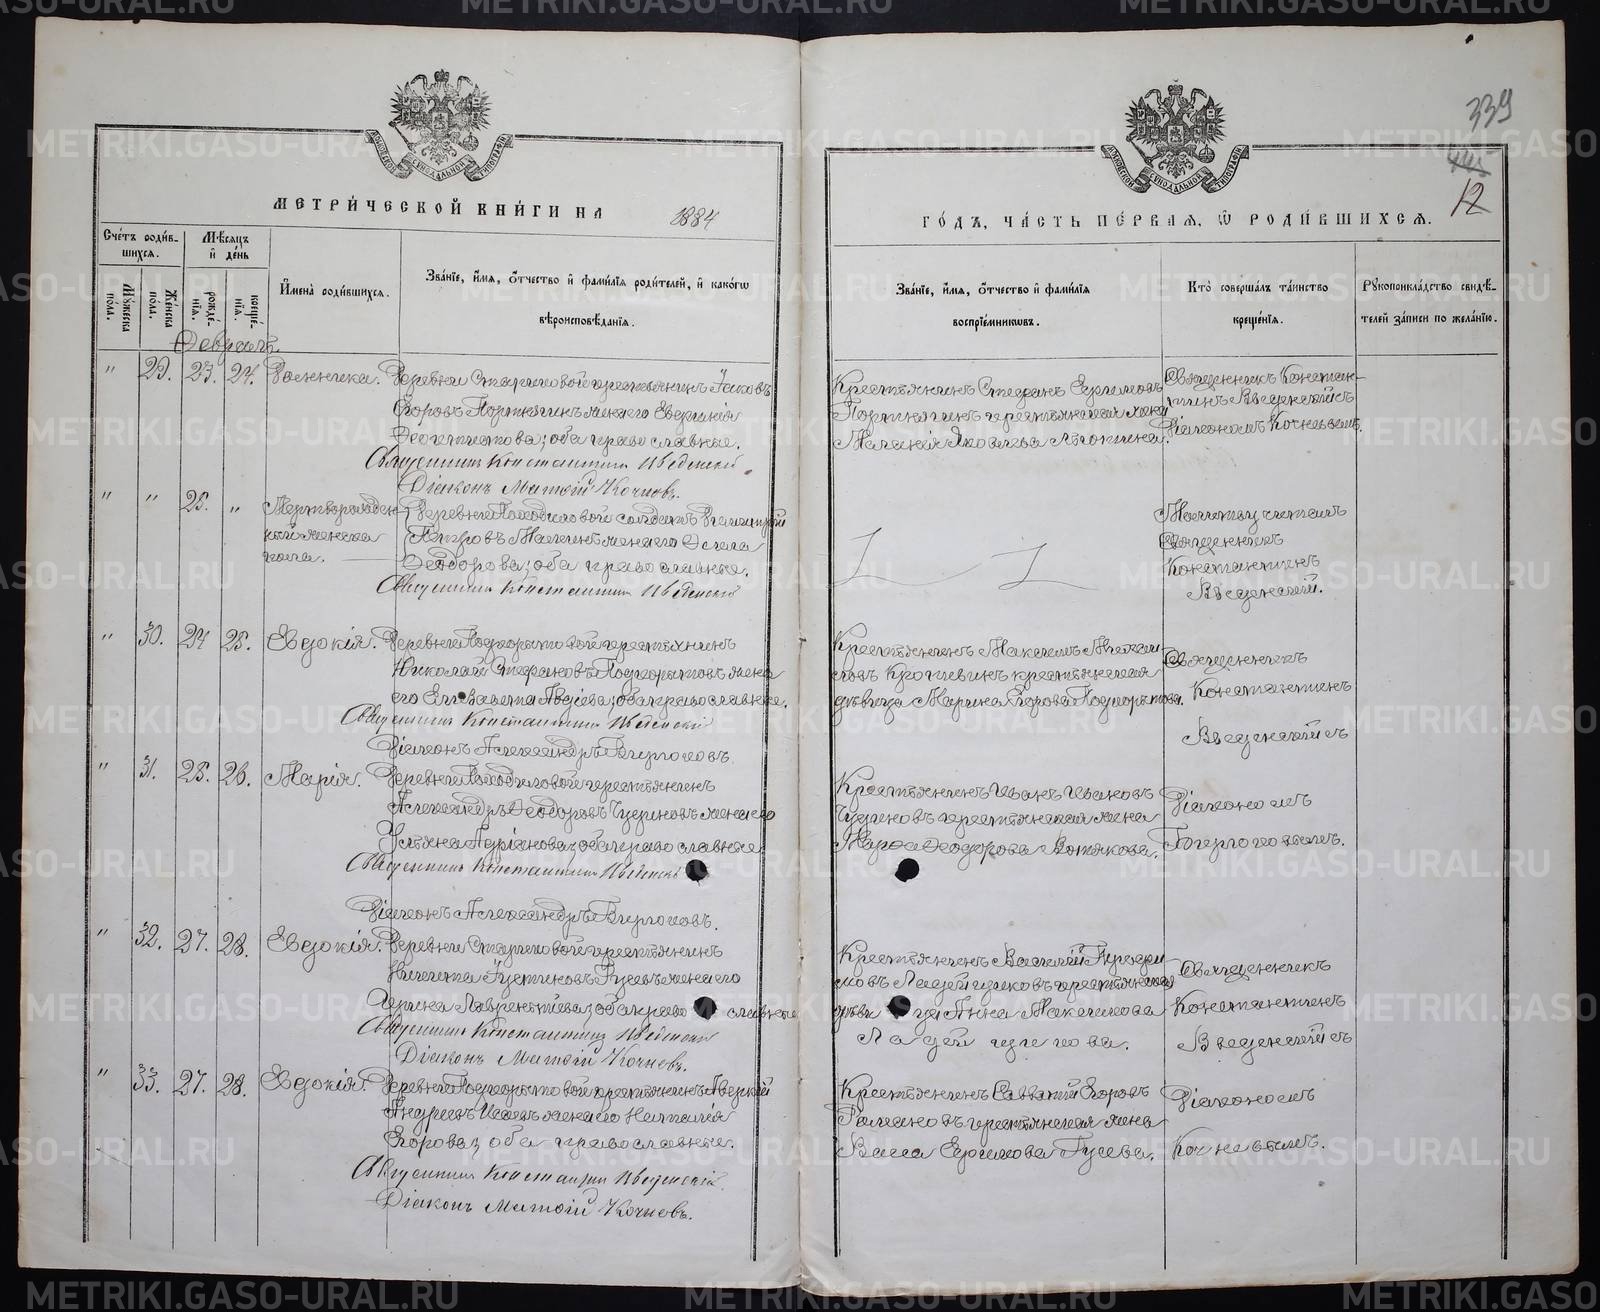 339
445
12
МЕТРИ́ЧЕСКОЙ КНИ́ГИ НА 1884
ГО́ДЪ, ЧА́СТЬ ПЕ́РВАЯ, Ѿ РОДИ́ВШИХСЯ.
Сче́тъ роди́вшихся.
Мꙋ́жеска по́ла.
Же́нска по́ла.
Мѣ́сяцъ и҆ де́нь
рожде́нїя.
креще́нїя.
И҆мена̀ роди́вшихся.
Зва́нїе, и҆́мя, ѻ҆́тчество и҆ фами́лїя роди́телей, и҆ како́гѡ
вѣроисповѣ́данїя.
Зва́нїе, и҆́мя, ѻ҆́тчество и҆ фами́лїя
воспрїе́мникѡвъ.
Кто̀ соверша́лъ та́инство
креще́нїя.
Рꙋкоприкла́дство свидѣ́телей за́писи по жела́нїю.
Февраль.
" 29. 23. 24.
Деревни Стариковой крестьянинъ Іаковъ
Егоровъ Портнягинъ жена его Евгенія
Феоктистова; оба православные.
Священникъ Константинъ Введенскій
Діаконъ Матѳій Кочневъ.
Крестьянинъ Стефанъ Ефимовъ
Портнягинъ крестьянская жена
Маланія Яковлева
Священникъ Констан-
тинъ Введенскій съ
Діакономъ Кочневымъ.
" " 25. "
Мертворожден-
ный женска
пола.
солдатъ
Петровъ жена его
Феодорова; оба православные.
Священникъ Константинъ Введенскій
Молитву читалъ
Священникъ
Константинъ
Введенскій.
" 30. 24 25. Евдокія.
Деревни Подкорытовой крестьянинъ
Николай Стефановъ Подкорытовъ жена
его Елизавета Авдіева; оба православные.
Священникъ Константинъ Введенскій
Діаконъ Александръ Бирюковъ.
Крестьянинъ Максимъ Михаи-
ловъ крестьянская
дѣвица Марина Егорова Подкорытова.
Священникъ
Константинъ
Введенскій съ
" 31. 25. 26. Марія.
крестьянинъ
Александръ Феодоровъ Чудиновъ жена его
Ульяна Адріанова; оба православные
Священникъ Константинъ Введенскій
Діаконъ Александръ Бирюковъ.
Крестьянинъ Иванъ Ивановъ
Чудиновъ крестьянская жена
Марѳа Феодорова Вотякова.
Діакономъ
Бирюковымъ.
" 32. 27. 28. Евдокія.
Деревни Стариковой крестьянинъ
Никита Іустиновъ Гусевъ жена его
Ирина Лаврентьева; оба православные
Священникъ Константинъ Введенскій
Діаконъ Матѳій Кочневъ.
Крестьянинъ Василій
Ладейщиковъ крестьянская
дѣвица Анна Максимова
Ладейщикова.
Священникъ
Константинъ
Введенскій съ
" 33. 27. 28. Евдокія.
Деревни Подкорытовой крестьянинъ
Андреевъ жена его Наталія
Егорова; оба православные.
Священникъ Константинъ Введенскій
Діаконъ Матѳій Кочневъ.
Крестьянинъ Савватій Егоровъ
Романовъ крестьянская жена
Васса Ефимова Гусева.
Діакономъ
Кочневымъ.
METRIKI.GASO-URAL.RU